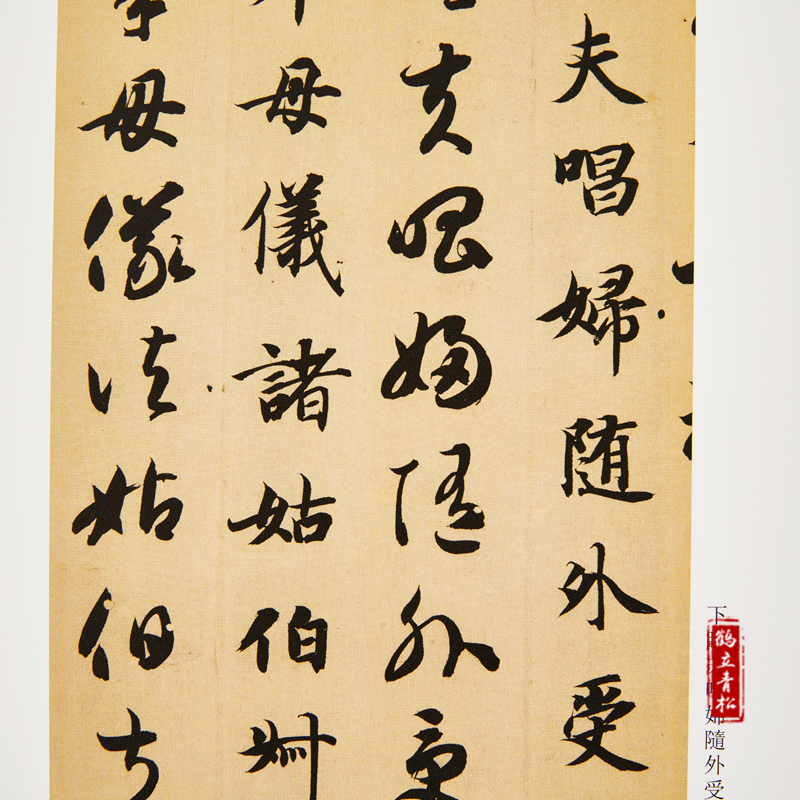 夫唱婦随外受
夫唱婦随外受
母儀諸姑伯叔
母儀諸姑伯叔
下
婦隨外受
鹤立青松